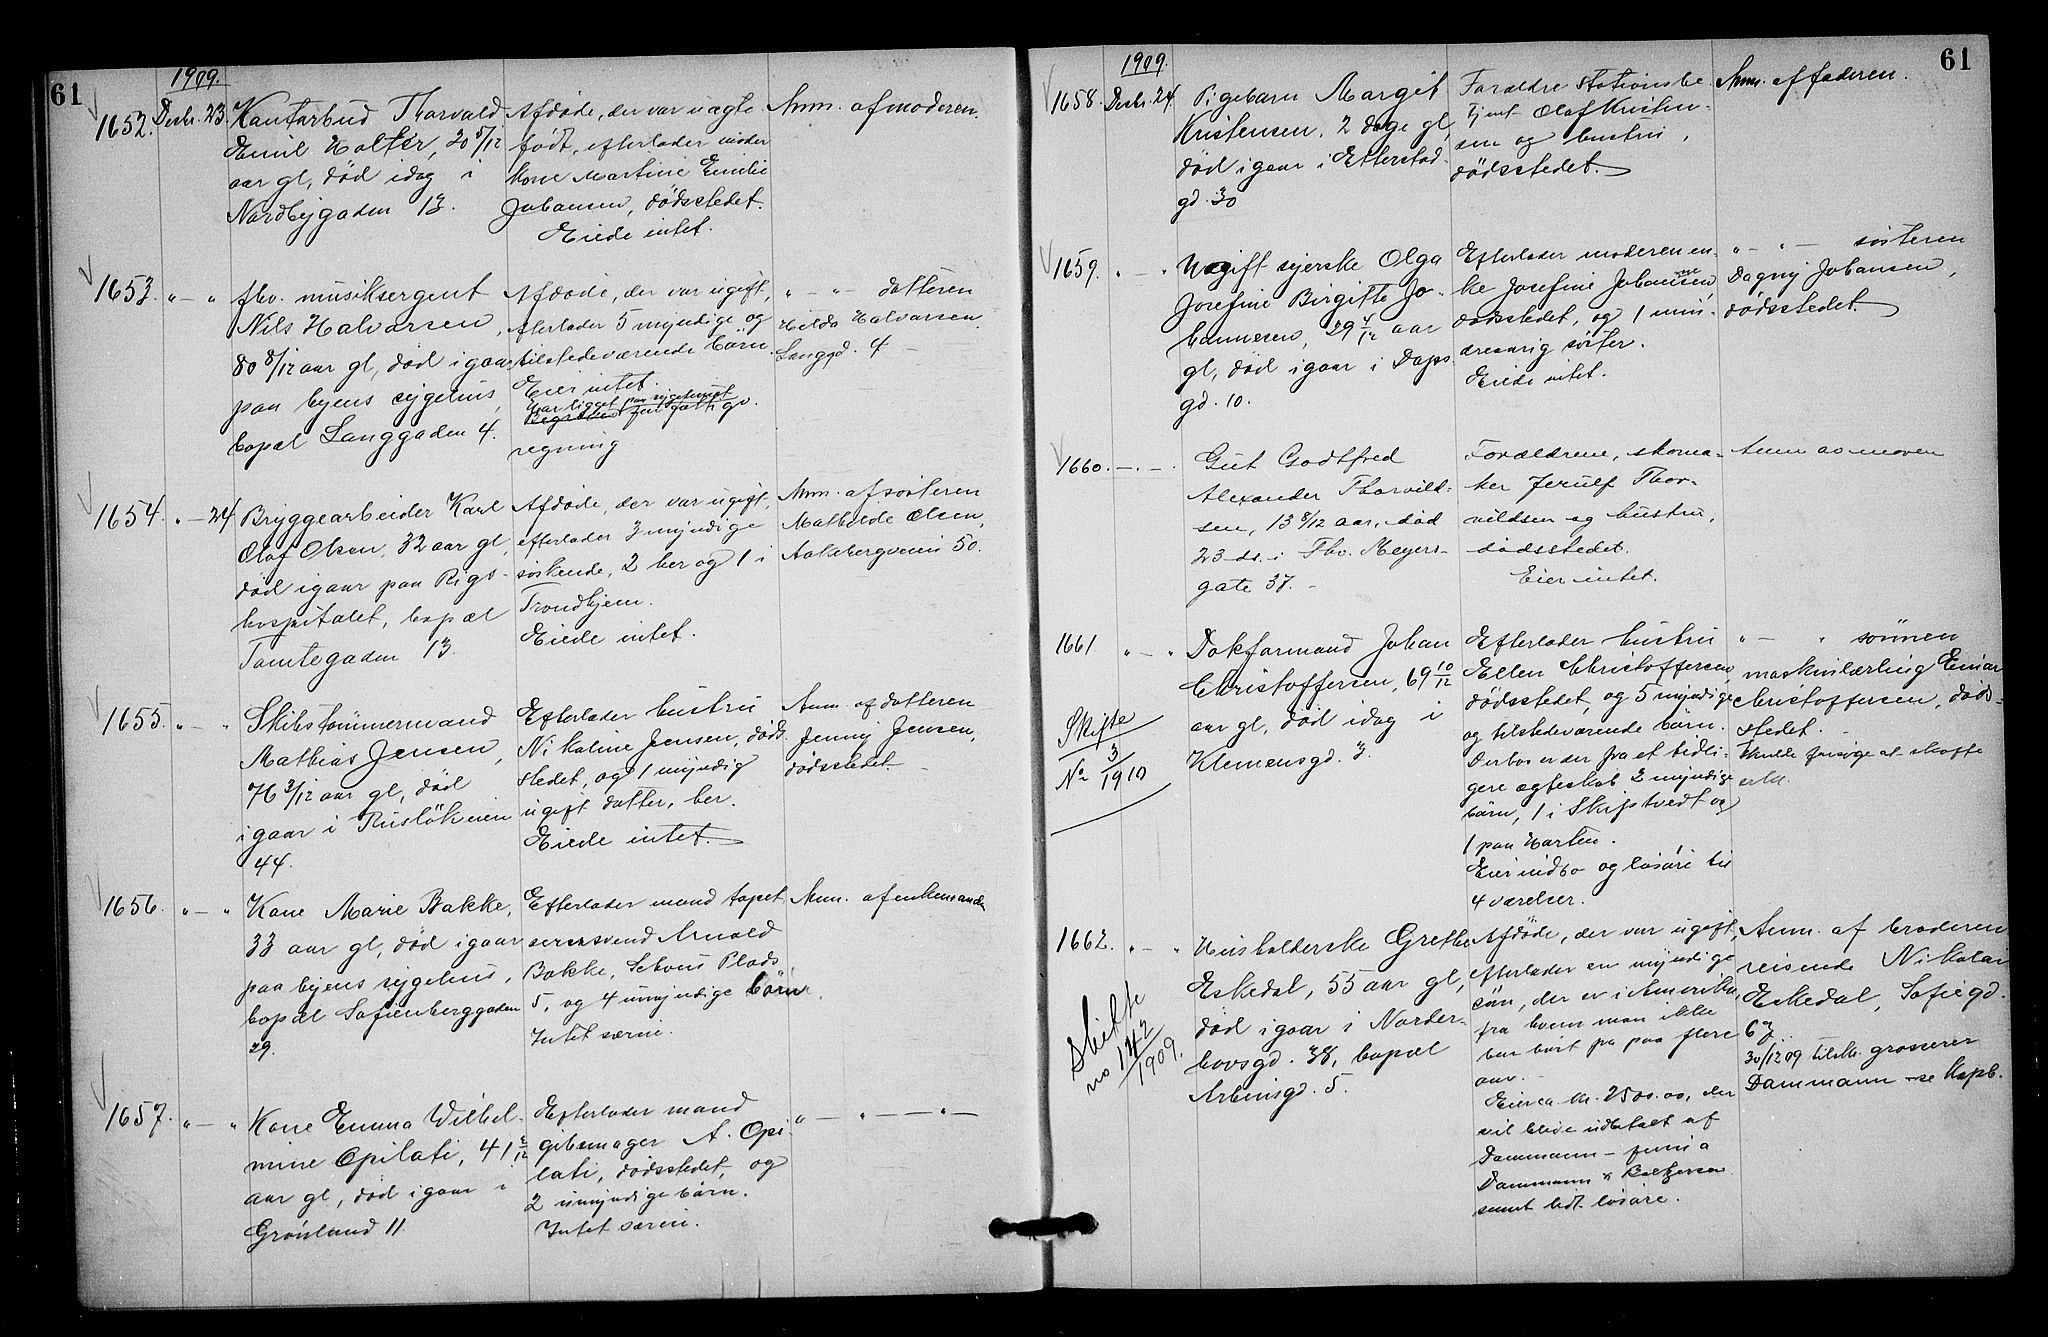 61
1909.
1652. Decbr. 23. Kontorbud Thorvald
Emil Holter, 20 5/12
aar gl, död idag i
Nordbygaden 13.
Afdøde, der var uægte
født, efterlader moder
kone Martine Emilie
Johansen, dödsstedet.
Eiede intet.
Anm. af moderen.
1653. " - " fhv. musiksergent
Nils Halvorsen,
80 8/12 aar gl, död igaar
paa byens sygehus,
bopæl Langgaden 4.
Afdøde, der var ugift,
efterlader 5 myndige og
tilstedeværende börn.
Eier intet.
Har ligget paa sygehuset
for fattigv.
regning
" " - datteren
Hilda Halvorsen
Langgd. 4 -
1654. " - 24 Bryggearbeider Karl
Olaf Olsen, 32 aar gl,
död igaar paa Rigs-
hospitalet, bopæl
Tomtegaden 13.
Afdøde, der var ugift,
efterlader 3 myndige
söskende, 2 her og 1 i
Trondhjem.
Eiede intet.
Anm. af søsteren
Mathilde Olsen,
Aakebergveien 50.
1655. " - " Skibstömmermand
Mathias Jensen,
76 3/12 aar gl, död
igaar i Ruslökveien
44.
Efterlader hustru
Nikoline Jensen, döds-
stedet, og 1 myndig
ugift datter, her.
Eiede intet.
Anm. af datteren
Jenny Jensen,
dödsstedet. -
1656. " - " Kone Marie Bakke,
33 aar gl, död igaar
paa byens sygehus,
bopæl Sofienberggaden
29.
Efterlader mand tapet-
serersvend Arnold
Bakke, Schous Plads
5, og 4 umyndige börn.
Intet særeie.
Anm. af enkemanden
1657. " - " Kone Emma Wilhel-
mine Opilati, 41 8/12
aar gl, död igaar i
Grönland 11.
Efterlader mand
gibsmager A. Opi-
lati, dödsstedet, og
2 umyndige börn.
Intet særeie.
" - " - - " -
61
1909.
1658. Decbr. 24. Pigebarn Margit
Kristensen, 2 dage gl,
död igaar i Etterstad-
gd. 30
Forældre Stationsbe-
tjent Olaf Kristen-
sen og hustru,
dödsstedet.
Anm. af faderen.
1659. " - " Ugift syerske Olga
Josefine Birgitte Jo-
hannesen, 29 4/12 aar
gl, död igaar i Daps-
gd. 10.
Efterlader moderen en-
ke Josefine Johannesen,
dödsstedet, og 1 min-
dreaarig söster.
Eiede intet.
" - " - søsteren
Dagny Johansen,
dödsstedet.
1660. - . - . Gut Godtfred
Alexander Thorvild-
sen, 13 8/12 aar, död
23 ds. i Thv. Meyers-
gate 37. -
Forældrene, skoma-
ker Jerulf Thor-
vildsen og hustru,
dödsstedet.
Eier intet.
Anm av moren
1661 " - " Dokformand Johan
Christoffersen, 69 10/12
aar gl, död idag i
Klemensgd. 3.
Skifte
No 3/1910
Efterlader hustru
Ellen Christoffersen,
dödsstedet, og 5 myndige
og tilstedeværende börn.
Derhos er der fra et tidli-
gere ægteskab 2 myndige
börn, 1 i Skiptvedt og
1 paa Horten.
Eier indbo og lösöre til
4 værelser.
" - " sönnen
maskinlærling Einar
Christoffersen, döds-
stedet. -
skulde forsøge at skaffe
erkl.
1662. " - " Husholderske Grethe
Eskedal, 55 aar gl,
död igaar i Norder-
hovsgd. 38, bopæl
Arbinsgd. 5.
Skifte
no 142/1909.
Afdøde, der var ugift,
efterlader en myndig
sön, der er i Amerika,
fra hvem man ikke
har hørt fra paa flere
aar. -
Eier ca. kr. 2500.00, der
vil blive udbetalt af
Dammann - firma
Dammann &
samt lidt lösöre.
Anm. af broderen
reisende Nikolai
Eskedal, Sofiegd.
67.
30/12 09 tilsk. grosserer
Dammann - se kopb.